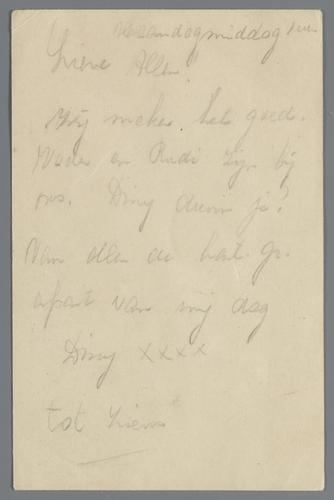 Maandagmiddag 1 uur
Lieve Allen!
Wij maken het goed.
Moeder en Rudi zijn bij
ons. Diny duim je?
Van allen de hart. gr.
apart van mij dag
Diny xxxx
tot ziens